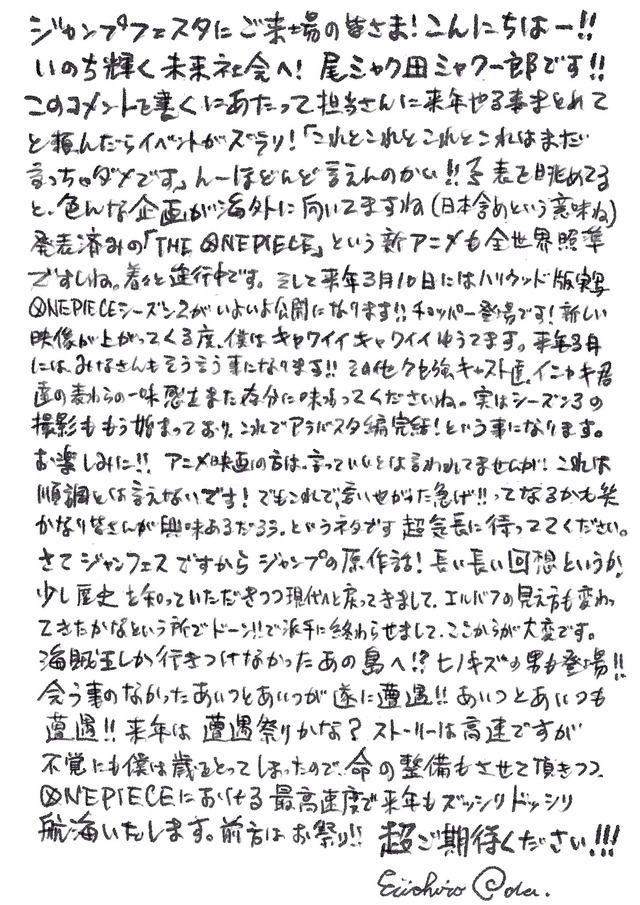 ジャンプフェスタにご来場の皆さま!こんにちはー!!
いのち輝く未来社会へ!尾ミャク田ミャク一郎です!!
このコメントを書くにあたって担当さんに来年やる事まとめて
と頼んだらイベントがズラリ!「これとこれとこれとこれはまだ
言っちゃダメです」んーほとんど言えんのかい!!予表を眺めてる
と、色んな企画が海外に向いてますね(日本含めという意味ね)
発表済みの「THE ONE PIECE」という新アニメも全世界照準
ですしね。着々と進行中です。そして来年3月10日にはハリウッド版実写
ONEPIECEシーズン2がいよいよ公開になります!!チョッパー登場です!新しい
映像が上がってくる度、僕はキャワイイキャワイイゆうてます。来年3月
にはみなさんもそう言う事になります!!その他クセ強キャスト達、イニャキ君
達の麦わらの一味感もまた存分に味わってくださいね。実はシーズン3の
撮影ももう始まっており、これでアラバスタ編完結!という事になります。
お楽しみに!!アニメ映画の方は、言っていいとは言われてませんが!これは
順調とは言えないです!でもこれで、言いやがった急げ!!ってなるかも笑
かなり皆さんが興味あるだろう。というネタです超気長に待っててください。
さてジャンフェスですからジャンプの原作話!長い長い回想というか!
少し歴史を知っていただきつつ現代へと戻ってきまして、エルバフの見え方も変わっ
てきたかなという所でドーン!!で派手に終わらせまして、ここからが大変です。
海賊王しか行きつけなかったあの島へ!?ヒノキズの男も登場!!
会う事のなかったあいつとあいつが遂に遭遇!!あいつとあいつも
遭遇!!来年は遭遇祭りかな?ストーリーは高速ですが
不覚にも僕は歳をとってしまったので、命の整備もさせて頂きつつ
ONEPIECEにおける最高速度で来年もズッシリドッシリ
航海いたします。前方はお祭り!!超ご期待ください!!!
Eiichiro Oda.